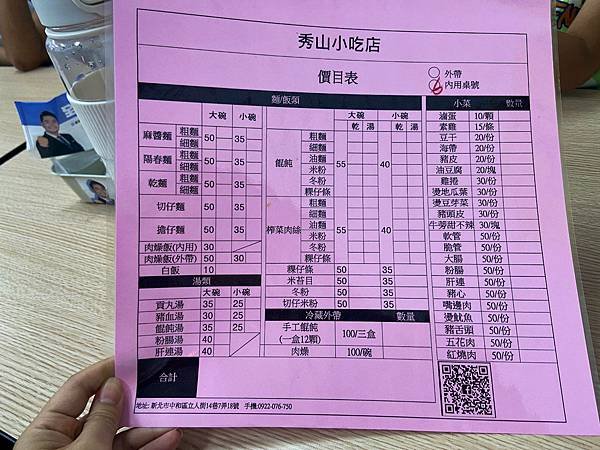 秀山小吃店
價目表
外帶
內用桌號
麵/飯類
大碗 小碗
麻醬麵 粗麵 細麵 50 35
陽春麵 粗麵 細麵 50 35
乾麵 粗麵 細麵 50 35
切仔麵 50 35
擔仔麵 50 35
肉燥飯(內用) 30
肉燥飯(外帶) 50 30
白飯 10
湯類
大碗 小碗
貢丸湯 35 25
豬血湯 30 25
餛飩湯 35 25
粉腸湯 40
肝連湯 40
合計
大碗 小碗
乾 湯 乾 湯
餛飩 55 40
粗麵
細麵
油麵
米粉
冬粉
粿仔條
榨菜肉絲 55 40
粗麵
細麵
油麵
米粉
冬粉
粿仔條
粿仔條 50 35
米苔目 50 35
冬粉 50 35
切仔米粉 50 35
冷藏外帶 數量
手工餛飩
(一盒12顆) 100/三盒
肉燥 100/碗
小菜 數量
滷蛋 10/顆
素雞 15/條
豆干 20/份
海帶 20/份
豬皮 20/份
油豆腐 20/塊
雞捲 30/份
燙地瓜葉 30/份
燙豆芽菜 30/份
豬頭皮 30/份
牛蒡甜不辣 30/塊
軟管 50/份
脆管 50/份
大腸 50/份
粉腸 50/份
肝連 50/份
豬心 50/份
嘴邊肉 50/份
燙魷魚 50/份
豬舌頭 50/份
五花肉 50/份
紅燒肉 50/份
地址: 新北市中和區立人街14巷7弄18號 手機:0922-076-750